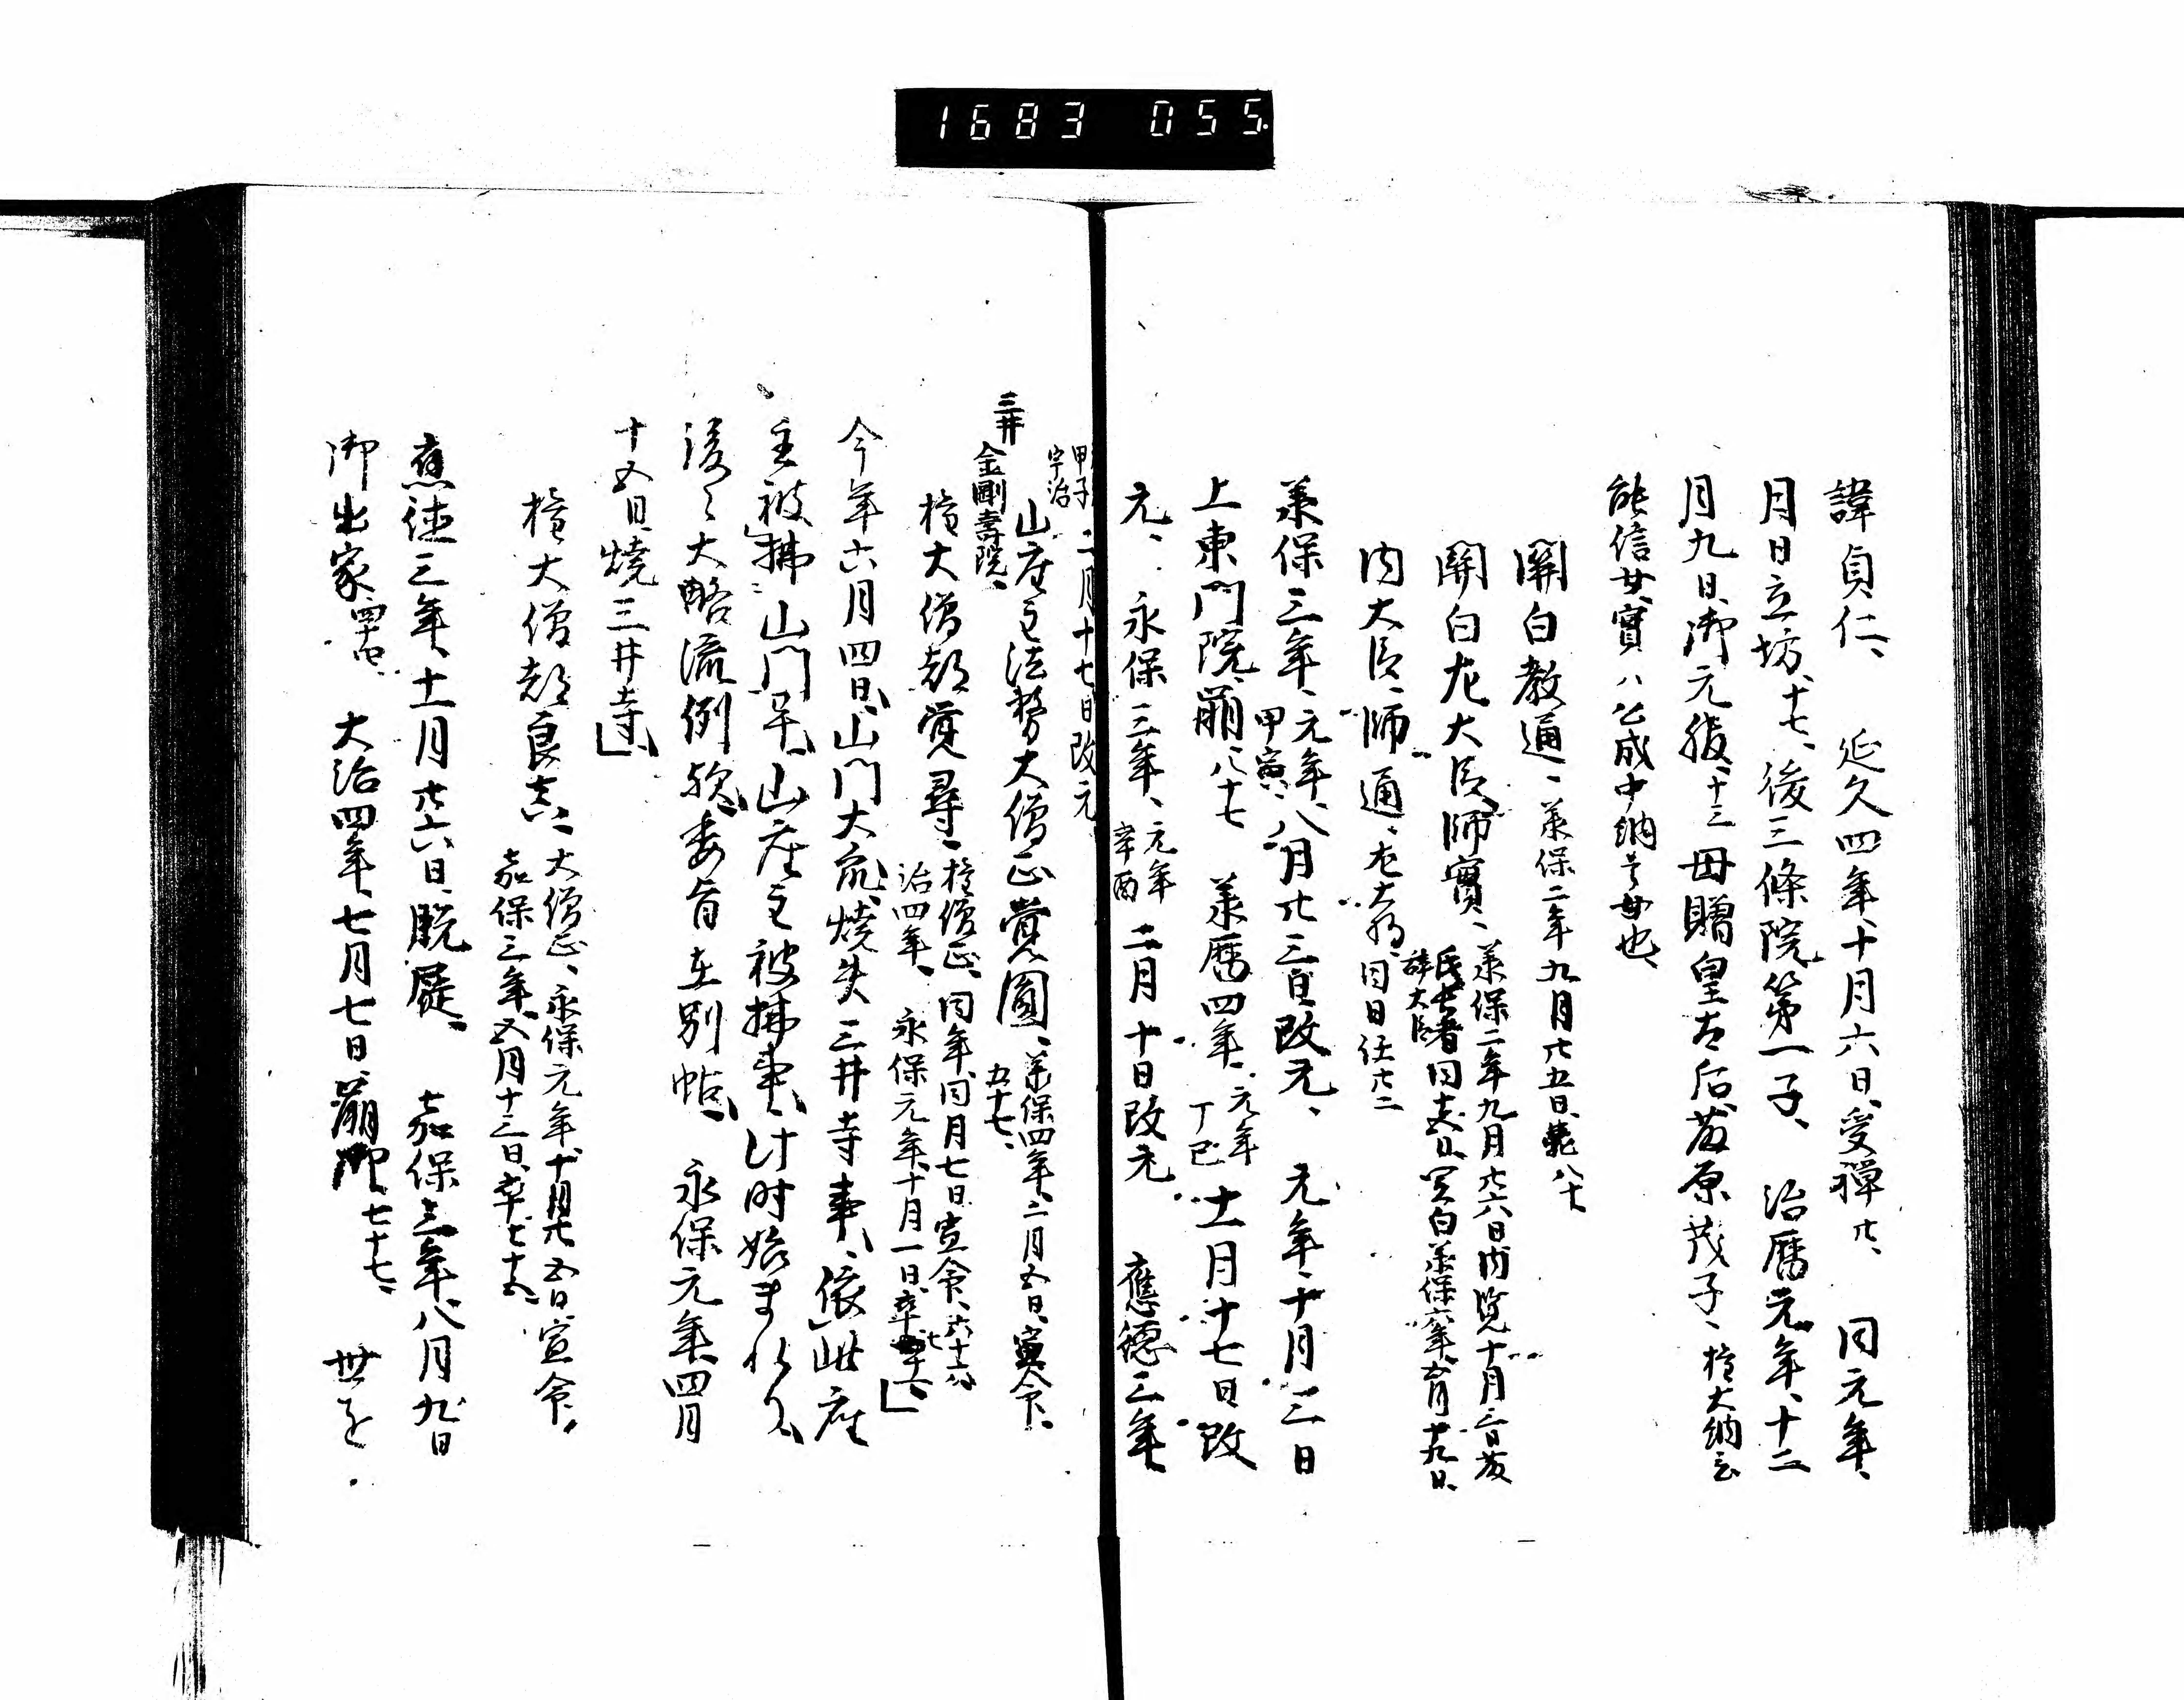 1683 055.
諱貞仁、 延久四年、十月六日、受禪、廿、 同元年、
月日立坊、十七、後三條院第一子、 治暦元年、十二
月九日、御元服、十三 母贈皇太后、藤原茂子、権大納言
能信女、實ハ公成中納言女也、
關白教通、承保二年九月廿五日、薨八十
關白左大臣師實、承保二年九月廿六日、内覽、十月三日、藤
氏長者、同十五日、関白、
辞大臣
内大臣、師通、左大将、同日任廿二
承保三年、元年、八月廿三日、改元、 元年、十月三日
甲寅、
上東門院崩、八十七 承暦四年、元年 十一月十七日改
丁巳
元、永保三年、元年 二月十日改元 應徳三年、
辛酉
甲子 二月十七日改元
宇治
三井
山座主法務大僧正覺圓、承保四年、二月五日、宣命、
五十七、
金剛壽院、
権大僧都覚尋、権僧正、同年、同月七日、宣命、六十六
治四年、永保元年、十月一日、卒
今年六月四日、山門大衆、焼失三井寺事、依此座
主被拂山門畢、山座主被拂事、此時始まれり、
後々大略流例歟、委旨在別帖、 永保元年、四月
十五日、焼三井寺、
権大僧都良真、大僧正、永保元年、十月廿五日、宣命、
嘉保三年、五月十三日、卒七十五、
應徳三年、十一月廿六日、脱屣、 嘉保三年、八月九日
御出家、四十四、 大治四年、七月七日、崩御、七十七、 世を